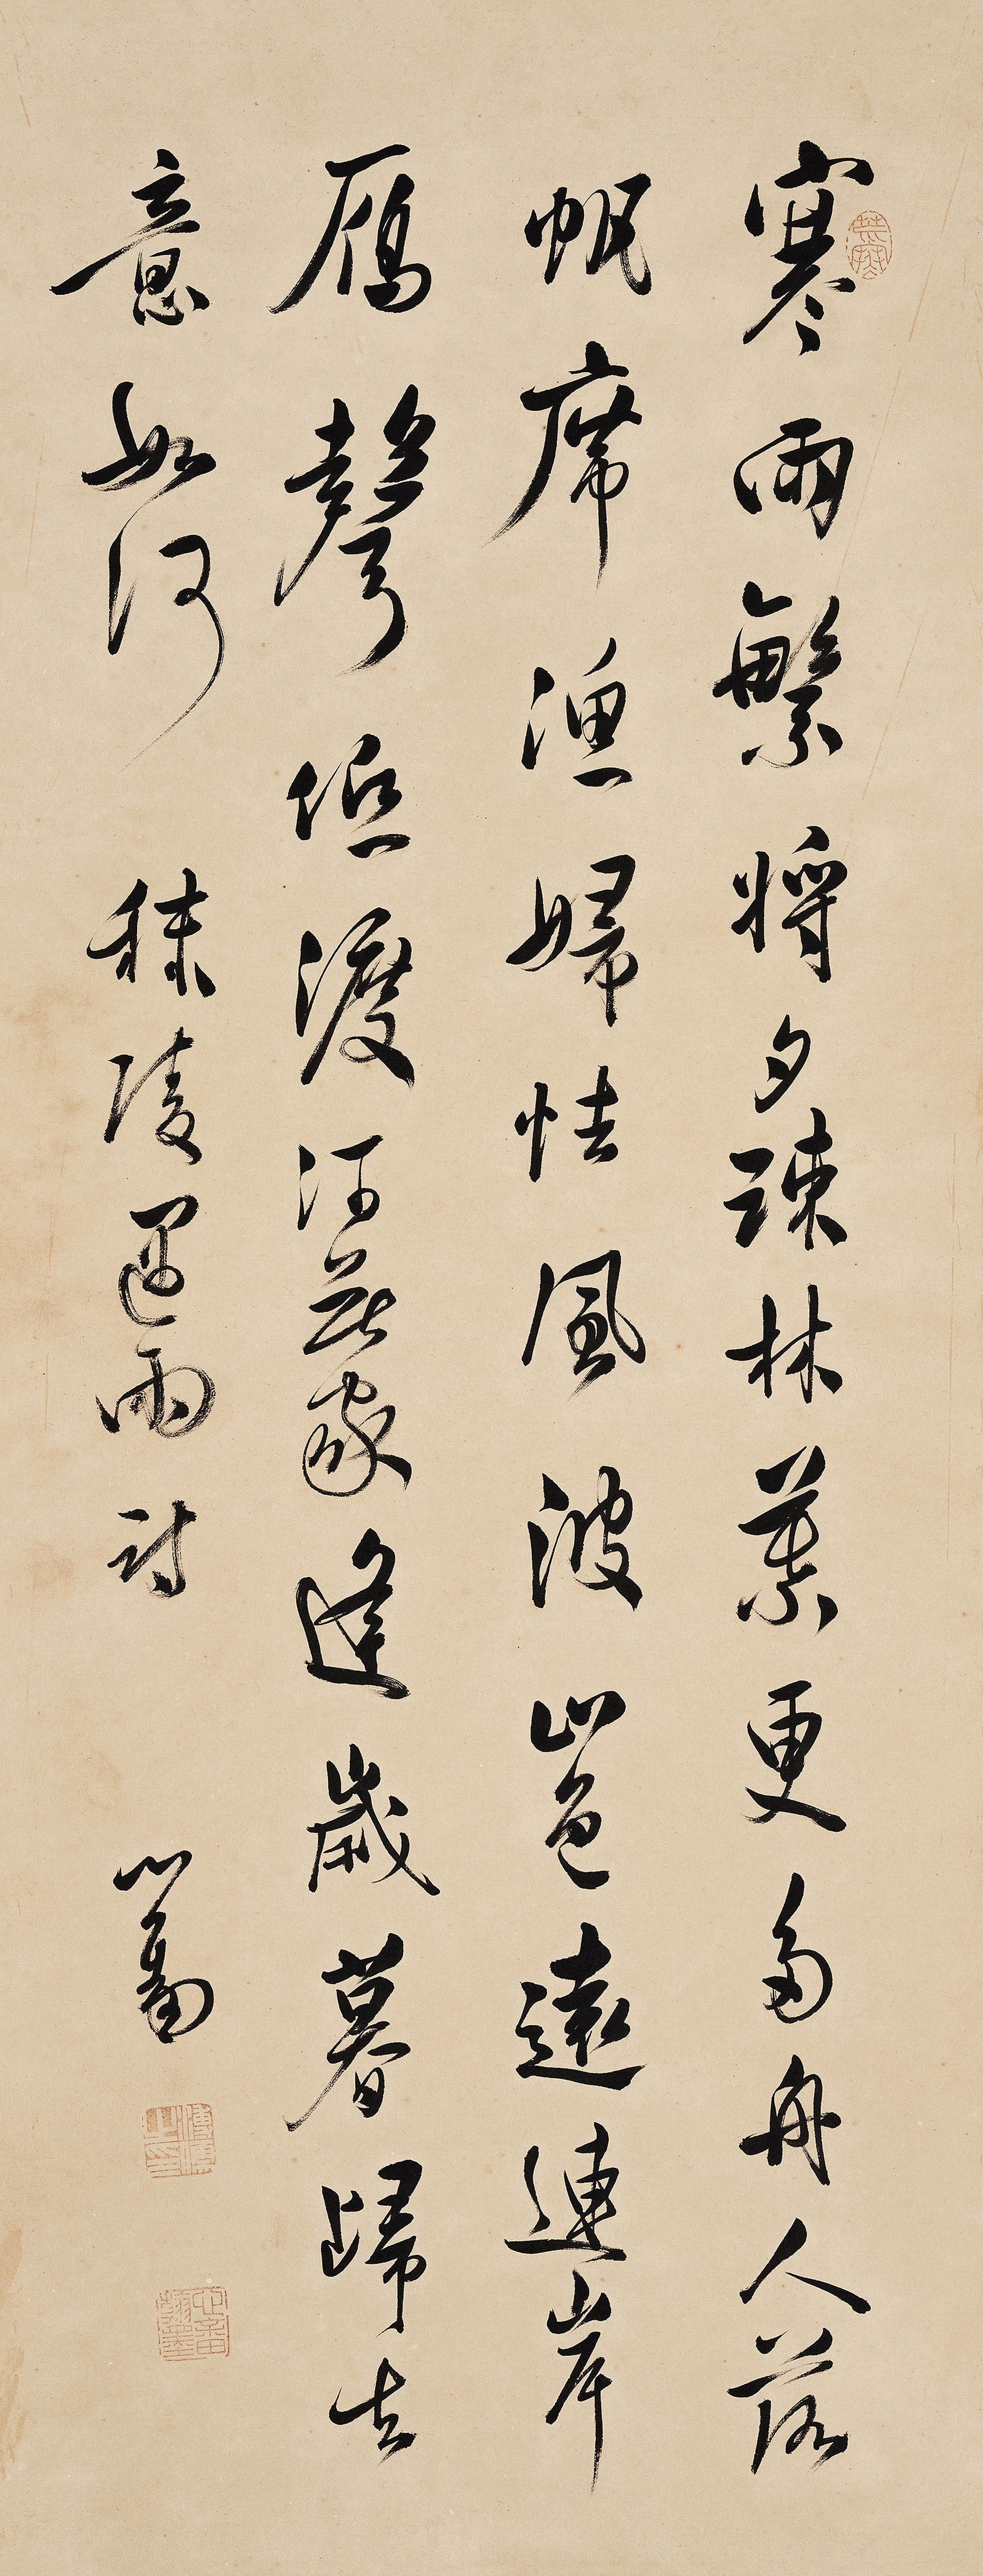 寒雨繁將夕疎林葉更多舟人落
帆席漁婦怯風波山色遠連岸
雁聲低渡河蒙逢歲暮歸去
意如何 秣陵遇雨詩 心畬
溥儒之印